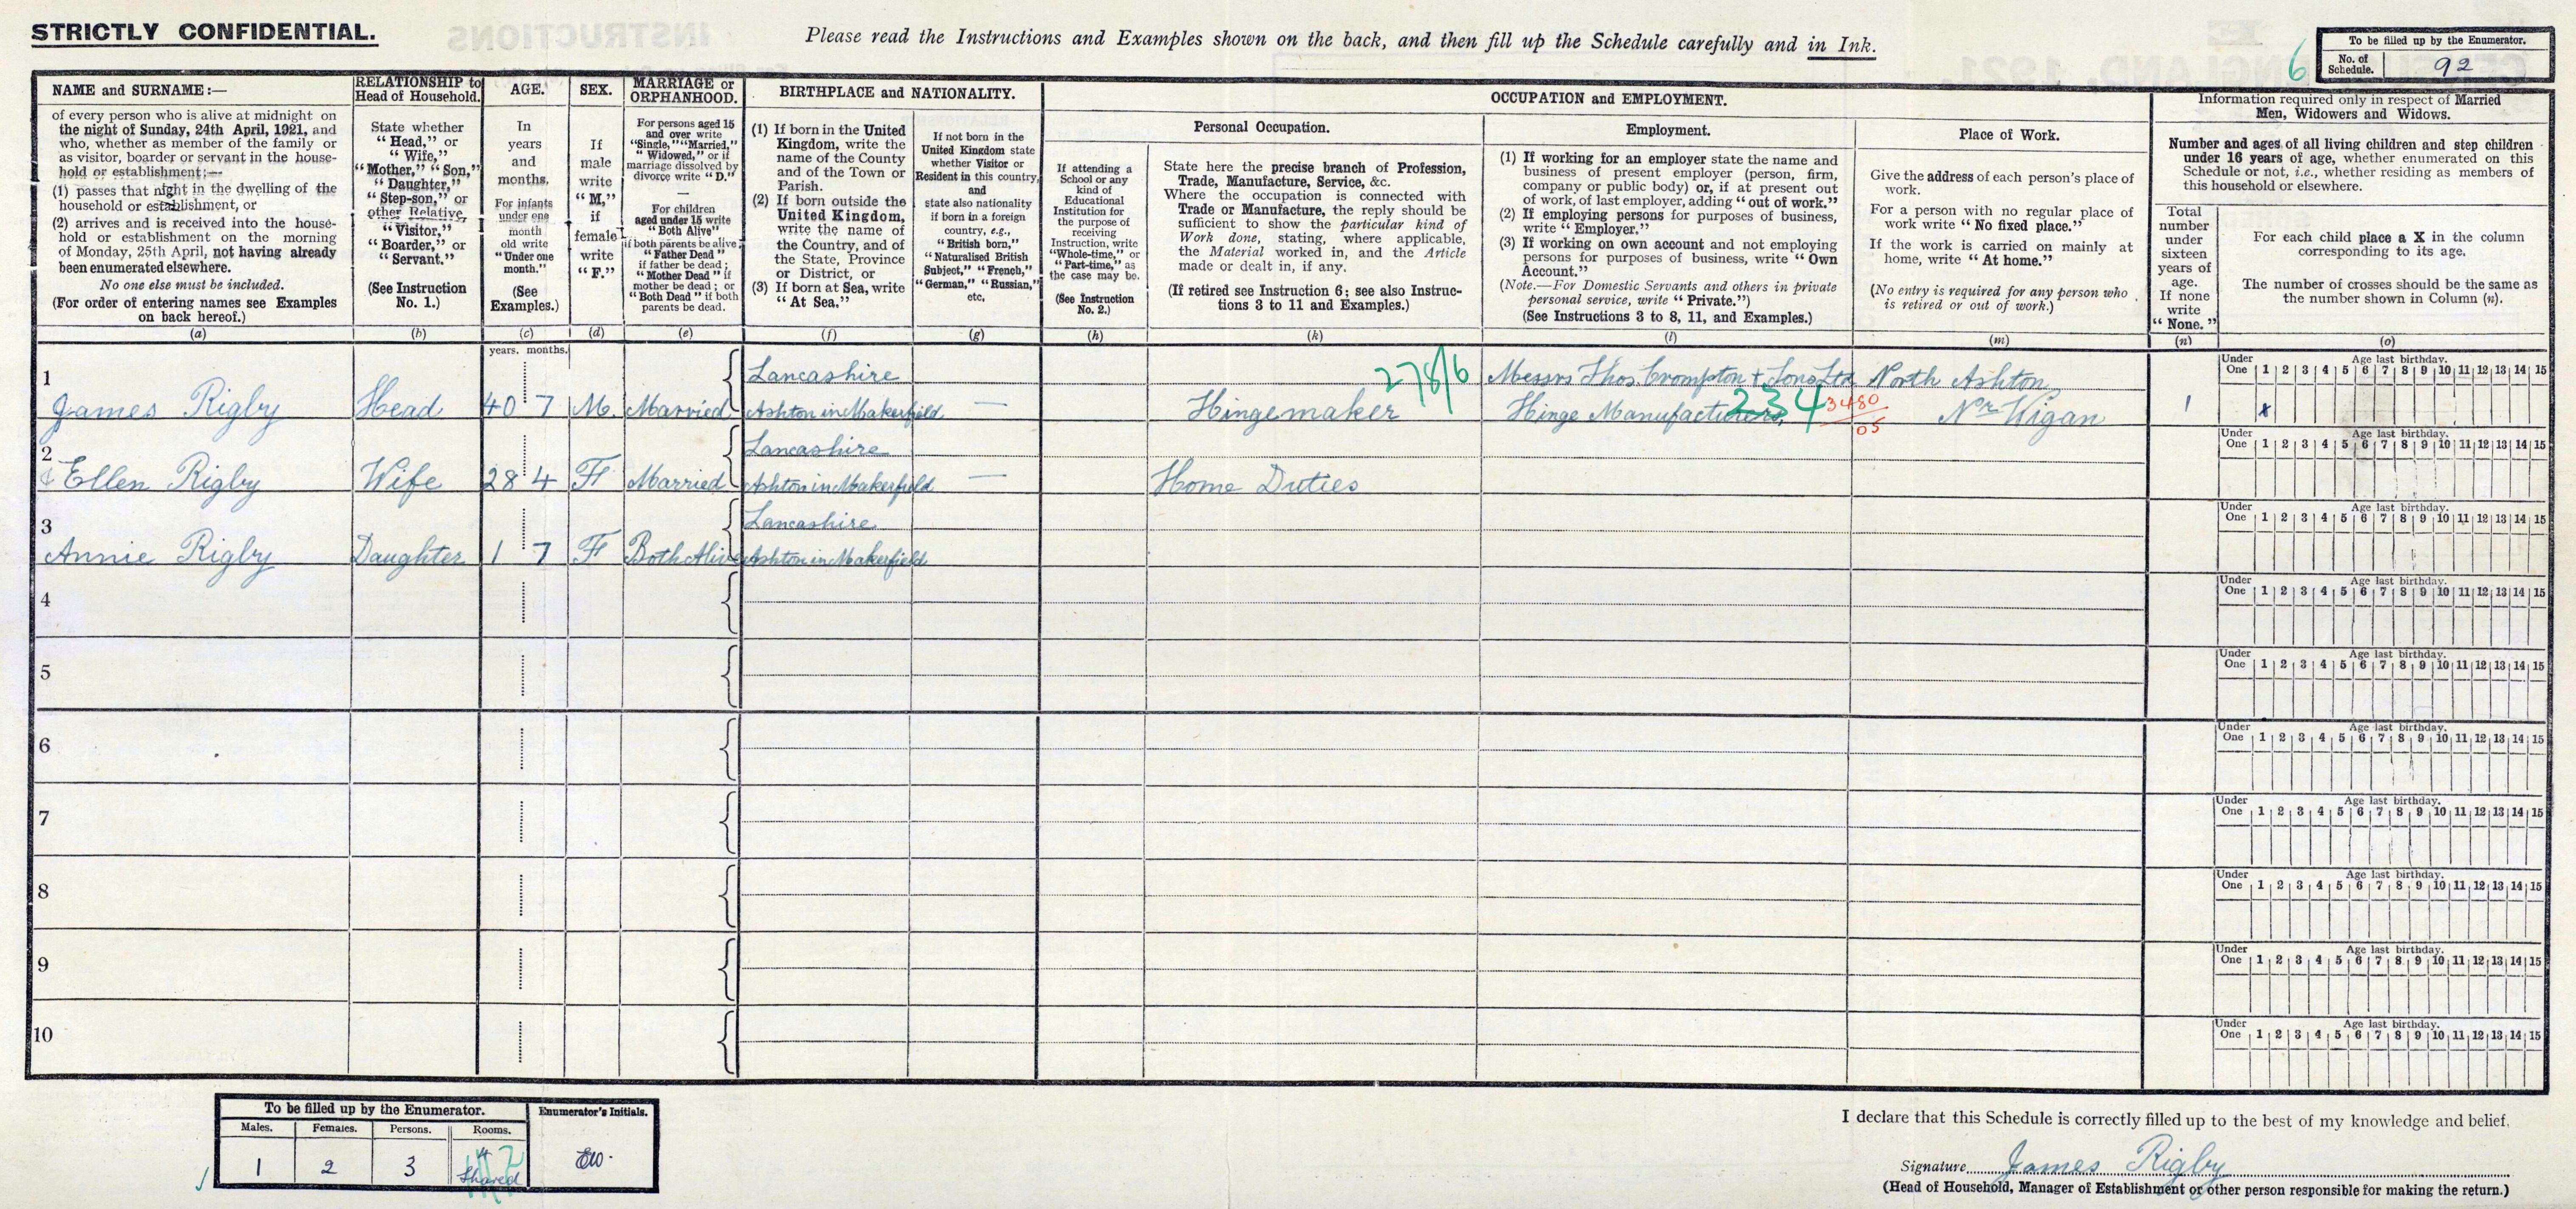 STRICTLY CONFIDENTIAL.
Please read the Instructions and Examples shown on the back, and then fill up the Schedule carefully and in Ink.
6
To be filled up by the Enumerator.
No. of Schedule. 92
NAME and SURNAME:—
of every person who is alive at midnight on
the night of Sunday, 24th April, 1921, and
who, whether as member of the family or
as visitor, boarder or servant in the house-
hold or establishment:—
(1) passes that night in the dwelling of the
household or establishment, or
(2) arrives and is received into the house-
hold or establishment on the morning
of Monday, 25th April, not having already
been enumerated elsewhere.
No one else must be included.
(For order of entering names see Examples
on back hereof.)
(a)
RELATIONSHIP to
Head of Household.
State whether
"Head," or
"Wife,"
"Mother," "Son,"
"Daughter,"
"Step-son," or
other Relative,
"Visitor,"
"Boarder," or
"Servant."
(See Instruction
No. 1.)
(b)
AGE.
In
years
and
months.
For infants
under one
month
old write
"Under one
month."
(See
Examples.)
(c)
SEX.
If
male
write
"M,"
if
female
write
"F."
(d)
MARRIAGE or
ORPHANHOOD.
For persons aged 15
and over write
"Single," "Married,"
"Widowed," or if
marriage dissolved by
divorce write "D."
—
For children
aged under 15 write
"Both Alive"
if both parents be alive;
"Father Dead"
if father be dead;
"Mother Dead" if
mother be dead; or
"Both Dead" if both
parents be dead.
(e)
BIRTHPLACE and NATIONALITY.
(1) If born in the United
Kingdom, write the
name of the County
and of the Town or
Parish.
(2) If born outside the
United Kingdom,
write the name of
the Country, and of
the State, Province
or District, or
(3) If born at Sea, write
"At Sea,"
(f)
If not born in the
United Kingdom state
whether Visitor or
Resident in this country,
and
state also nationality
if born in a foreign
country, e.g.,
"British born,"
"Naturalised British
Subject," "French,"
"German," "Russian,"
etc,
(g)
OCCUPATION and EMPLOYMENT.
Personal Occupation.
If attending a
School or any
kind of
Educational
Institution for
the purpose of
receiving
Instruction, write
"Whole-time," or
"Part-time," as
the case may be.
(See Instruction
No. 2.)
(h)
State here the precise branch of Profession,
Trade, Manufacture, Service, &c.
Where the occupation is connected with
Trade or Manufacture, the reply should be
sufficient to show the particular kind of
Work done, stating, where applicable,
the Material worked in, and the Article
made or dealt in, if any.
(If retired see Instruction 6; see also Instruc-
tions 3 to 11 and Examples.)
(k)
Employment.
(1) If working for an employer state the name and
business of present employer (person, firm,
company or public body) or, if at present out
of work, of last employer, adding "out of work."
(2) If employing persons for purposes of business,
write "Employer."
(3) If working on own account and not employing
persons for purposes of business, write "Own
Account."
(Note.—For Domestic Servants and others in private
personal service, write "Private.")
(See Instructions 3 to 8, 11, and Examples.)
(l)
Place of Work.
Give the address of each person's place of
work.
For a person with no regular place of
work write "No fixed place."
If the work is carried on mainly at
home, write "At home."
(No entry is required for any person who
is retired or out of work.)
(m)
Information required only in respect of Married
Men, Widowers and Widows.
Number and ages of all living children and step children
under 16 years of age, whether enumerated on this
Schedule or not, i.e., whether residing as members of
this household or elsewhere.
Total
number
under
sixteen
years of
age.
If none
write
"None."
(n)
For each child place a X in the column
corresponding to its age.
The number of crosses should be the same as
the number shown in Column (n).
(o)
years. months.
1
James Rigby Head 40 7 M. Married Lancashire
Ashton in Makerfield — Hingemaker 278/6 Messrs Thos. Crompton & Sons Ltd North Ashton
Hinge Manufacturers, 234 3480/05 Nr Wigan 1 x
Under One Age last birthday. 1 2 3 4 5 6 7 8 9 10 11 12 13 14 15
2
Ellen Rigby Wife 28 4 F Married Lancashire
Ashton in Makerfield — Home Duties
Under One Age last birthday. 1 2 3 4 5 6 7 8 9 10 11 12 13 14 15
3
Annie Rigby Daughter 1 7 F Both Alive Lancashire
Ashton in Makerfield
Under One Age last birthday. 1 2 3 4 5 6 7 8 9 10 11 12 13 14 15
4
Under One Age last birthday. 1 2 3 4 5 6 7 8 9 10 11 12 13 14 15
5
Under One Age last birthday. 1 2 3 4 5 6 7 8 9 10 11 12 13 14 15
6
Under One Age last birthday. 1 2 3 4 5 6 7 8 9 10 11 12 13 14 15
7
Under One Age last birthday. 1 2 3 4 5 6 7 8 9 10 11 12 13 14 15
8
Under One Age last birthday. 1 2 3 4 5 6 7 8 9 10 11 12 13 14 15
9
Under One Age last birthday. 1 2 3 4 5 6 7 8 9 10 11 12 13 14 15
10
Under One Age last birthday. 1 2 3 4 5 6 7 8 9 10 11 12 13 14 15
To be filled up by the Enumerator. Enumerator's Initials.
Males. Females. Persons. Rooms.
1 2 3 Shared EW.
I declare that this Schedule is correctly filled up to the best of my knowledge and belief.
Signature James Rigby
(Head of Household, Manager of Establishment or other person responsible for making the return.)